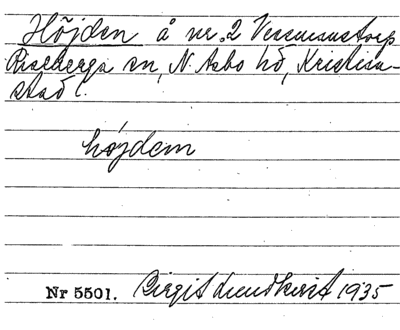 Höjden å nr. 2 Vesumstorp
Riseberga sn, N. Åsbo hd, Kristian-
stad l.
höjdem
Nr 5501. Birgit Lundkvist 1935